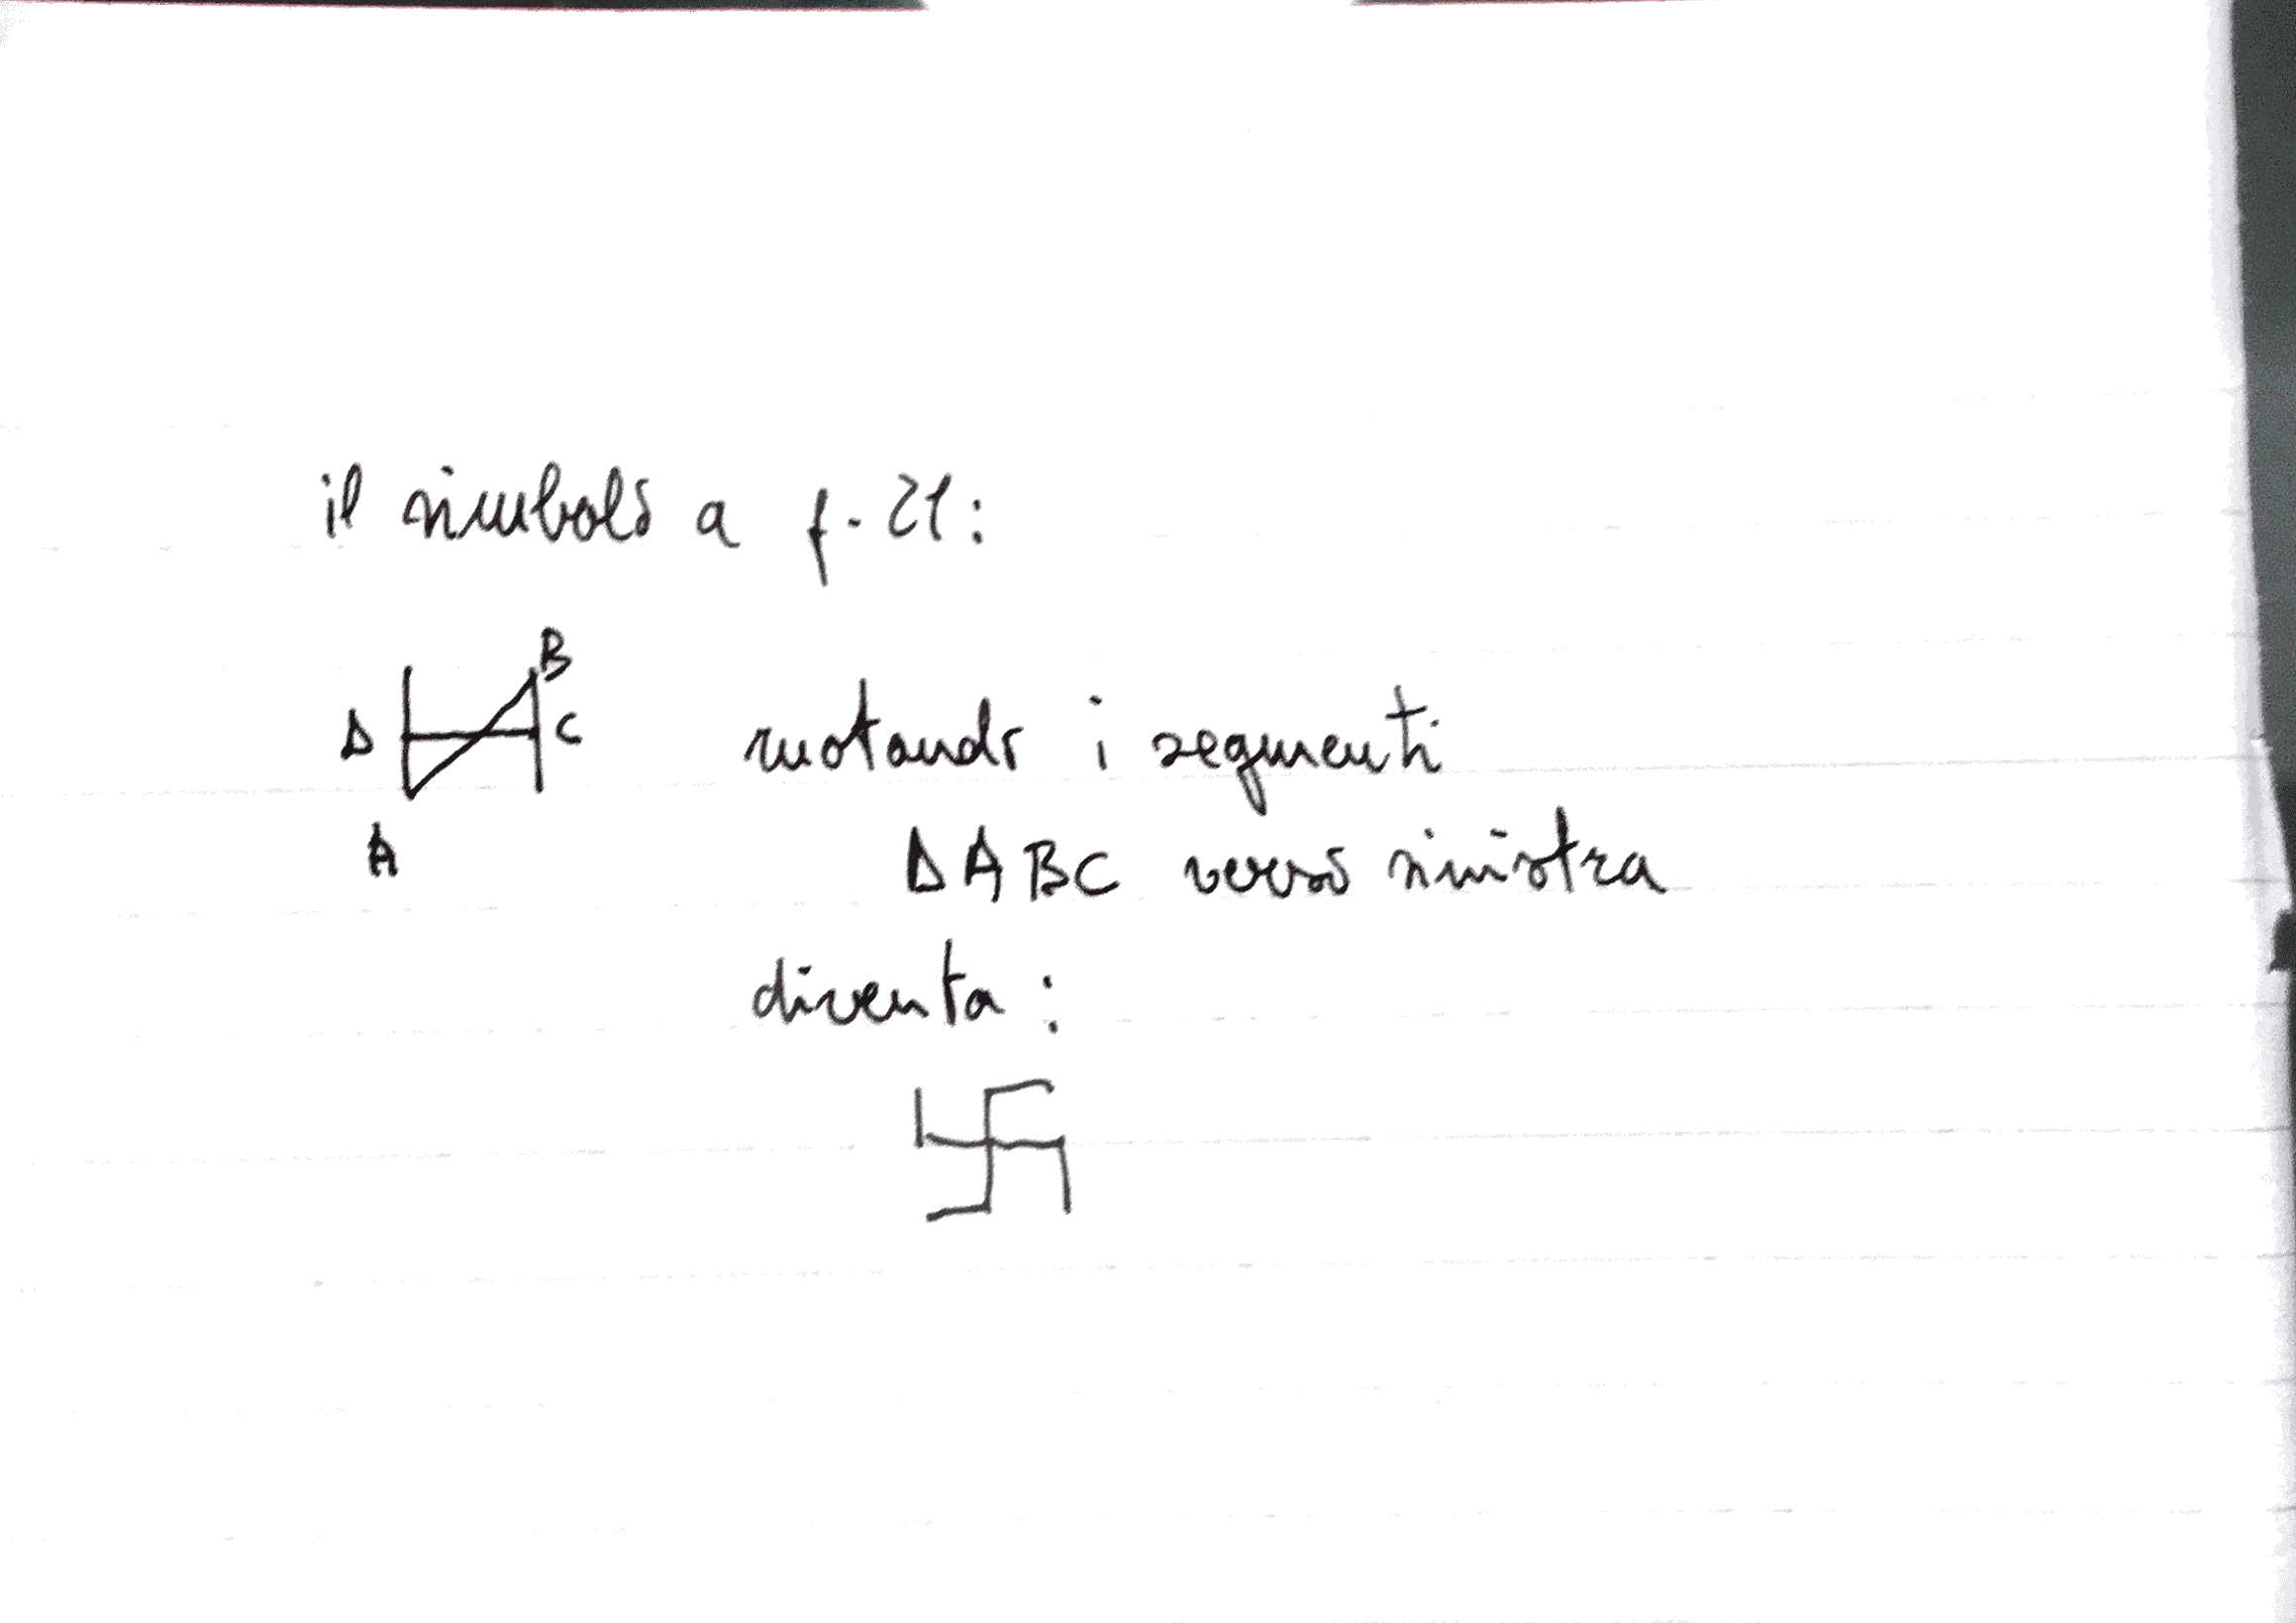 il simbolo a f. 21:
B
D C
A
ruotando i segmenti
DABC verso sinistra
diventa: